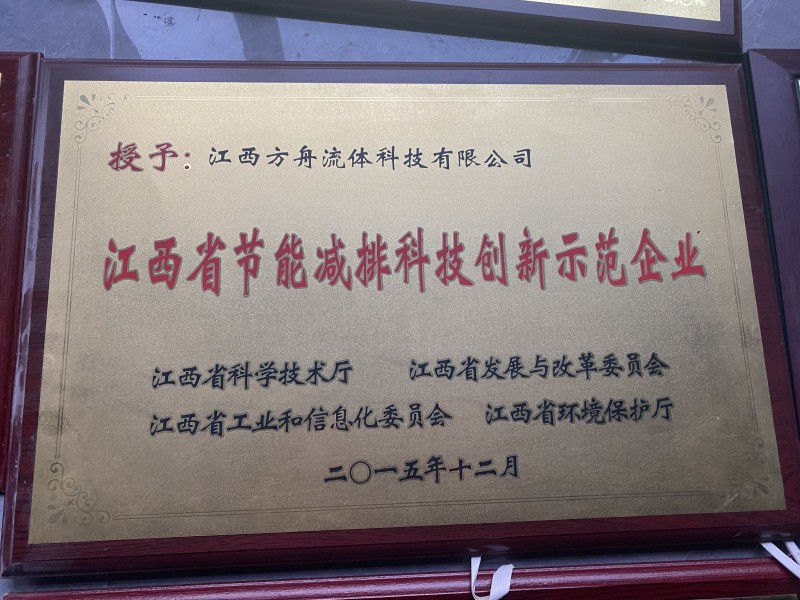 授予：江西方舟流体科技有限公司
江西省节能减排科技创新示范企业
江西省科学技术厅 江西省发展与改革委员会
江西省工业和信息化委员会 江西省环境保护厅
二〇一五年十二月